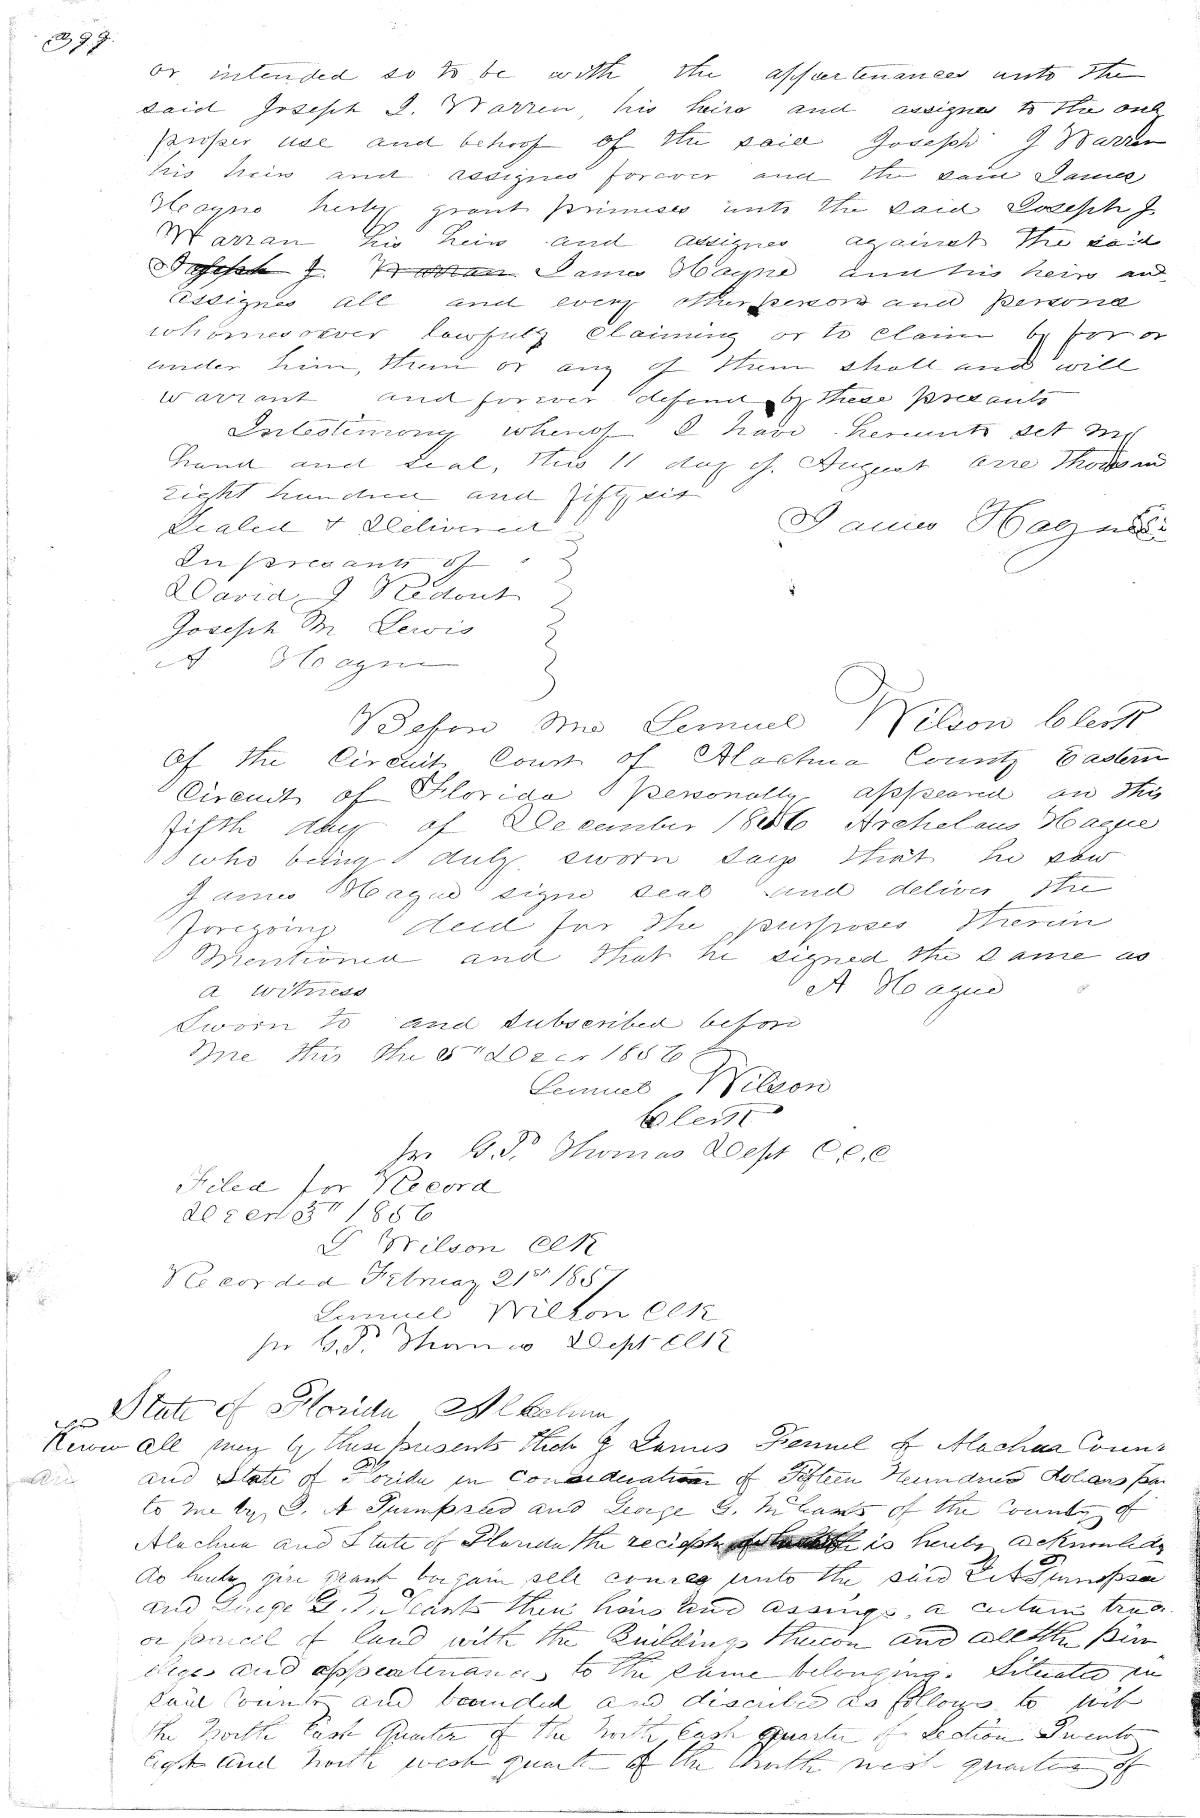 399
or intended so to be with the appurtenances unto the
said Joseph J. Warren, his heirs and assignes to the only
proper use and behoof of the said Joseph J Warren
his heirs and assignes forever and the said James
Hague herby grant primises unto the said Joseph J.
Warran his heirs and assignes against the said
Joseph J. Warran James Hague and his heirs and
assignes all and every other person and persons
whomesoever lawfully claiming or to claim by for or
under him, them or any of them shall and will
warrant and forever defend by these presants
Intestimony whereof I have hereunto set my
hand and seal, this 11 day of August one thousand
eight hundred and fifty six
Sealed & Delivered James Hague
In presants of
David J Redout
Joseph M Lewis
A Hague
Before me Lemuel Wilson Clerk
of the Circuit Court of Alachua County Eastern
Circuit of Florida personally appeared on this
fifth day of December 1856 Archelaus Hague
who being duly sworn says that he saw
James Hague signe seal and deliver the
foregoing deed for the purposes therein
mentioned and that he signed the same as
a witness A Hague
Sworn to and subscribed before
me this the 5th Decr 1856
Lemuel Wilson
Clerk
pr G.P. Thomas Dept C.C.C
Filed for Record
Decem 5th 1856
L Wilson Clk
Recorded February 21st 1857
Lemuel Wilson Clk
pr G.P. Thomas Dept Clk
State of Florida Alachua
Know all men by these presents that I James Fennel of Alachua Coun
and State of Florida in consideration of Fifteen Hundred dollars pa
to me by and George G. of the County of
Alachua and State of Florida the reciept is hereby acknowledg
do hereby give grant bargain sell convey unto the said
and George G. their heirs and assings, a certain trac
or parcel of land with the Buildings thereon and all the priv
eliges and appeatenances to the same belonging. Situated in
said County and bounded and discribed as follows to wit
the North East Quarter of the North East quarter of Section Twenty
Eight and North west quarter of the North west quarter of